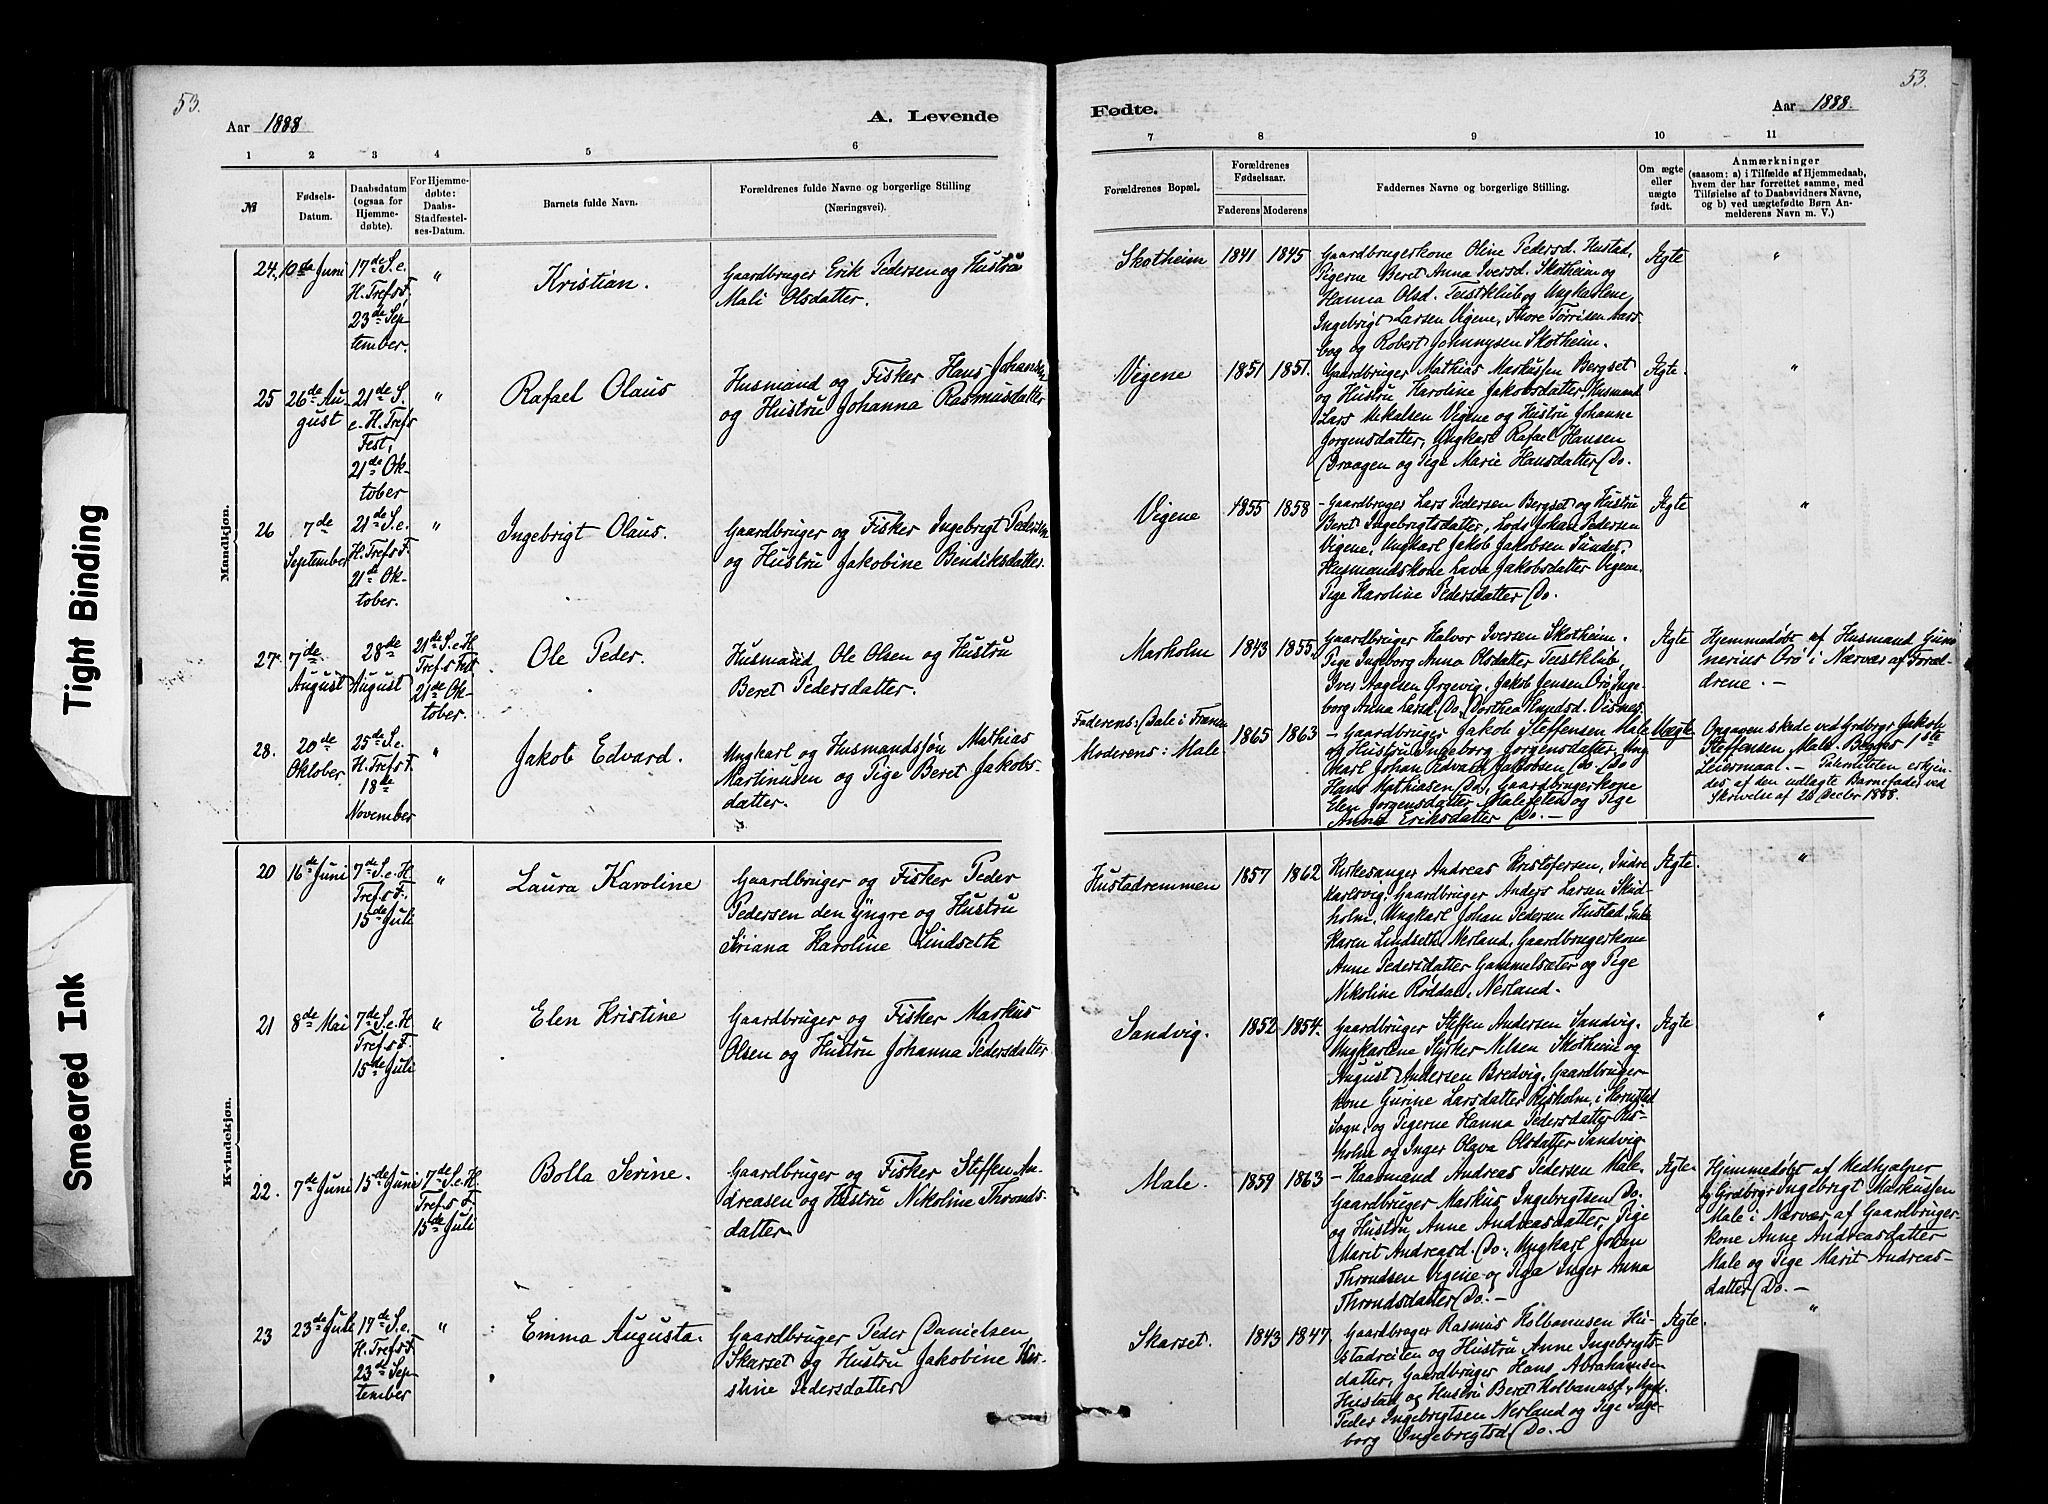 53.
Aar 1888
A. Levende
1 2 3 4 5 6
№
Fødsels-
Datum.
Daabsdatum
(ogsaa for
Hjemme-
døbte).
For Hjemme-
døbte:
Daabs-
Stadfæstel-
ses-Datum.
Barnets fulde Navn.
Forældrenes fulde Navne og borgerlige Stilling
(Næringsvei).
Mandkjøn.
24. 10de Juni
17de S. e.
H. Tref s F.
23de Sep
tember.
"
Kristian.
Gaardbruger Erik Pedersen og Hustru
Mali Olsdatter.
25 26de Au-
gust
21de S.
e. H. Tref s
Fest,
21de Ok-
tober
"
Rafael Olaus
Husmand og Fisker Hans Johansen
og Hustru Johanna Rasmusdatter
26 7de
September
21de S. e.
H. Tref s F.
21de Ok-
tober.
"
Ingebrigt Olaus.
Gaardbruger og Fisker Ingebrigt Pedersen
og Hustru Jakobine Bendiksdatter.
27. 7de
August
28de
August
21de S. e H.
Tref s Fest
21de Ok-
tober.
Ole Peder.
Husmand Ole Olsen og Hustru
Beret Pedersdatter.
28. 20de
Oktober.
25de S. e.
H. Tref s F.
18de
November
"
Jakob Edvard.
Ungkarl og Husmandssøn Mathias
Martinusen og Pige Beret Jakobs-
datter.
Kvindekjøn.
20 16de Juni
7de S. e. H.
Tref s F.
15de Juli
"
Laura Karoline
Gaardbruger og Fisker Peder
Pedersen den yngre og Hustru
Siriana Karoline Lindseth
21 8de Mai
7de S. e. H
Tref s F.
15de Juli
"
Elen Kristine
Gaardbruger og Fisker Markus
Olsen og Hustru Johanna Pedersdatter
22. 7de Juni
15de Juni
7de S. e. H.
Tref s F
15de Juli
Bolla Serine.
Gaardbruger og Fisker Steffen An-
dreasen og Hustru Nikoline Thronds-
datter
23 23de Juli
17de S. e.
H. Tref s F
23de Sep-
tember
"
Emma Augusta.
Gaardbruger Peder Danielsen
Skarset og Hustru Jakobine Kir-
stine Pedersdatter
53.
Fødte.
Aar 1888.
7 8 9 10 11
Forældrenes Bopæl.
Forældrenes
Fødselsaar.
Faderens Moderens
Faddernes Navne og borgerlige Stilling.
Om ægte
eller
uægte
født.
Anmærkninger
(saasom: a) i Tilfælde af Hjemmedaab,
hvem der har forrettet samme, med
Tilføielse af to Daabsvidners Navne,
og b) ved uægtefødte Børn An-
melderens Navn m. V.)
Skotheim 1841 1845
Gaardbrugerkone Oline Pedersd. Hustad,
Pigerne Beret Anna Iversd. Skotheim og
Hanna Olsd. Teistklub og Ungkarlene,
Ingebrigt Larsen Vigene, Thore Torrisen Aars-
bog og Robert Johnnysen Skotheim.
Ægte
"
Vigene 1851 1851.
Gaardbruger Mathias Markussen Bergset
og Hustru Karoline Jakobsdatter, Husmand
Lars Mikalsen Vigene og Hustru Johanne
Jorgensdatter, Ungkarl Rafael Hansen
Braagen og Pige Marie Hansdatter Do.
Ægte.
"
Vigene 1855 1858
- Gaardbruger Lars Pedersen Bergset og Hustru
Beret Ingebrigtsdatter, Lods Johan Pedersen
Vigene, Ungkarl Jakob Jakobsen Sundet,
Husmandskone Lava Jakobsdatter Vigene.
Pige Karoline Pedersdatter Do.
Ægte
"
Marholm 1843 1855.
Gaardbruger Halvor Iversen Skotheim.
Pige Ingeborg Anna Olsdatter Teistklub,
Iver Aagesen Ørgevig, Jakob Jensen Orø, Inge-
borg Anna Larsd. Do, Dorthea Knudsd. Visnes.
Ægte
Hjemmedøbt af Husmand Gun-
nerius Orø i Nærvær af Foræl-
drene. -
Faderens: Bale i Fræne
Moderens: Male
1865 1863
- Gaardbruger Jakob Steffensen Male
og Hustru Ingeborg Jorgensdatter, Ung
karl Johan Edvald Jakobsen Do. Do
Hans Mathiasen Do, Gaardbrugerkone
Elen Jorgensdatter Malefeten og Pige
Anna Eriksdatter Do. -
Uægte
Opgaven skede ved Grdbrgr. Jakob
Steffensen Male. Begges 1ste
Leiermaal. - Paterniteten erkjen-
des af den udlagte Barnefader ved
Skrivelse af 20 Decbr 1888.
Hustadremmen 1857 1862
Kirkesanger Andreas Kristofersen, Indre
Karlsvig, Gaardbruger Anders Larsen Skid-
holm, Ungkarl Johan Pedersen Hustad, Enke
Karen Lindseth Nerland, Gaardbrugerkone
Anne Pedersdatter Gammelsæter og Pige
Nikoline Røddal, Nerland.
Ægte.
"
Sandvig. 1852 1854.
Gaardbruger Steffen Andersen Sandvig,
Ungkarlene Styrker Nilsen Skotheim og
August Andersen Bredvig, Gaardbruger-
kone Gurine Larsdatter Risholm, i
Sogn, og Pigerne Hanna Pedersdatter Ris-
holm og Inger Olava Olsdatter Sandvig
Ægte
"
Male. 1859 1863
- Kaarmand Andreas Pedersen Male,
Gaardbruger Markus Ingebrigtsen Do.
og Hustru Anne Andreasdatter, Pige
Marit Andreasd. Do, Ungkarl Johan
Throndsen Vigene og Pige Inger Anna
Throndsdatter Do. -
Ægte
Hjemmedøbt af Medhjælper
og Grdbrgr Ingebrigt Markussen
Male i Nærvær af Gaardbruger-
kone Anne Andreasdatter
Male og Pige Marit Andreas-
datter Do. -
Skarset. 1843 1847.
Gaardbruger Rasmus Kolbanusen Hu-
stadreiten og Hustru Anne Ingebrigts-
datter, Gaardbruger Hans Abrahamsen
Hustad og Hustru Beret Kolbanusd, Ungk.
Peder Ingebrigtsen Nerland og Pige Inge-
borg Ingebrigtsd Do. -
Ægte.
"
Tight Binding
Smeared Ink